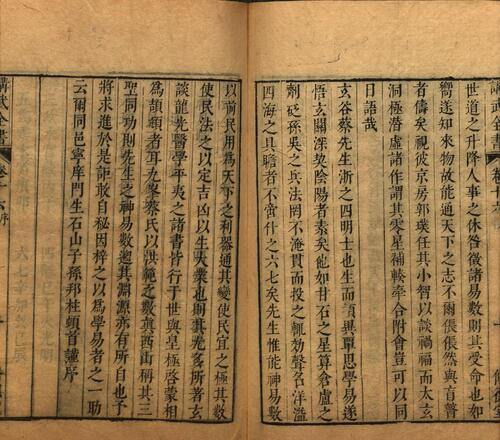 世道之升降人事之休咎揆諸易數則其受命也如
嚮遂知來物故能通天下之志不爾倀倀然與盲瞽
者儔矣視彼京房郭璞任其小智以談禍福而太玄
洞極潛虛諸作謂其零星補輳牽合附會豈可以同
日語哉
玄谷蔡先生浙之四明士也生而讀異單思學易遂
悟玄關深契陰陽者素矣他如甘石之星算倉盧之
劑砭孫吳之兵法罔不淹貫而投之輒効聲名洋溢
四海之具瞻者不啻什之六七矣先生惟能神易數
以前民用為天下之利器通其變使民宜之極其數
使民法之以定吉凶以生大業也則其光多所著玄
談龍光醫學平夷之諸書皆行于世與皇極啓蒙相
為頡頏者耳九峯蔡氏以洪範之數眞西山稱其三
聖同功則先生之神易數遡其淵源亦有所自也予
將求進於是詎敢自秘因梓之以為學易者之一助
云爾同邑寧庠門生石山子孫邦柱頓首謹序
講武全書